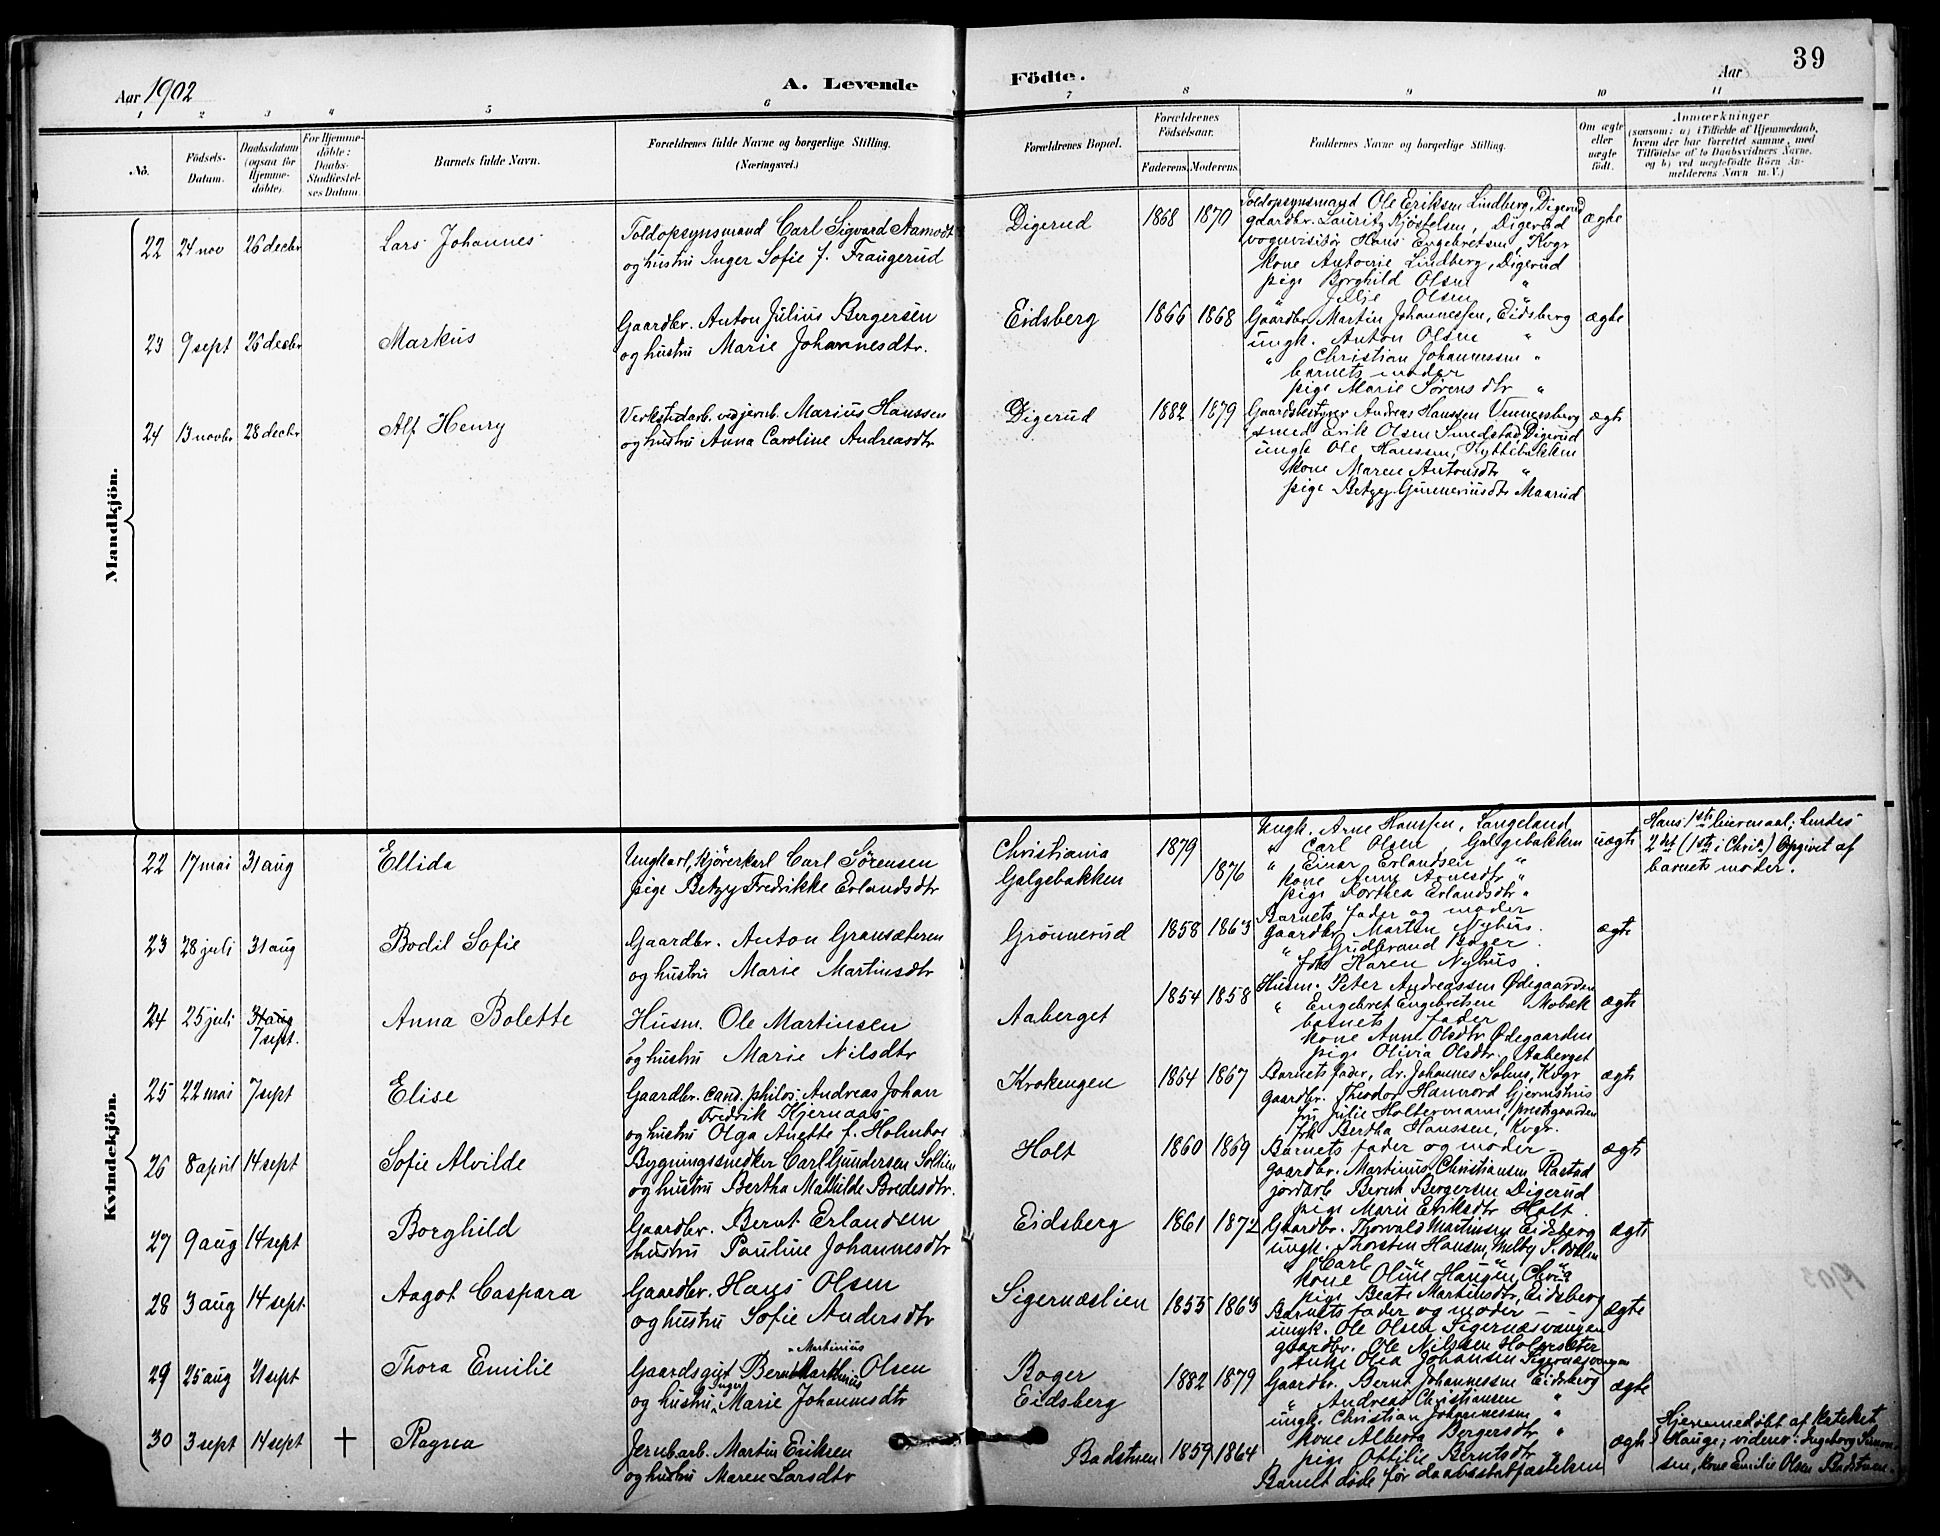 Aar 1902
A. Levende
Födte.
Aar
39
1 2 3 4 5 6 7 8 9 10 11
No.
Födsels-Datum.
Daabsdatum (ogsaa för Hjemmedöbte).
For Hjemmedöbte: Daabs-Stadfæstelses Datum.
Barnets fulde Navn.
Forældrenes fulde Navne og borgerlige Stilling.
(Næringsvei.)
Forældrenes Bopæl.
Forældrenes Födselsaar.
Faderens. Moderens.
Faddernes Navne og borgerlige Stilling.
Om ægte eller uægte födt.
Anmærkninger
(saasom: a) i Tilfælde af Hjemmedaab,
hvem der har forrettet samme, med
Tilföielse af to Daabsvidners Navne,
og b) ved uægtefödte Börn An-
melderens Navn m. V.)
Mandkjön.
22 24 nov 26 decbr Lars Johannes
Toldopsynsmand Carl Sigvard Aamodt
og hustru Inger Sofie f. Fraugerud
Digerud 1868 1870
Toldopsynsmand Ole Eriksen Lindberg, Digerud
gaardbr. Lauritz Kjöstelsen, Digerud
vognvisitör Hans Engebretsen, Kvgr
kone Antonie Lindberg, Digerud
pige Borghild Olsen "
" Julie Olsen "
ægte
23 9 sept 26 decbr Markus
Gaardbr. Anton Julius Bergersen
og hustru Marie Johannesdtr.
Eidsberg 1866 1868
Gaardbr. Martin Johannessen, Eidsberg
ungk. Anton Olsen "
" Christian Johannessen "
barnets moder
pige Marie Sørensdtr "
ægte
24 13 novbr 28 decbr Alf Henry
Verkstedarb. ved jernb. Marius Hanssen
og hustru Anna Caroline Andreasdtr
Digerud 1882 1879
Gaardsbestyrer Andreas Hanssen Vennersberg
smed Erik Olsen Smedstad, Digerud
ungk. Ole Hanssen, Hyttebakken
kone Maren Antonsdtr "
pige Betzy Gunneriusdtr Maarud
ægte
Kvindekjön.
22 17 mai 31 aug Ellida
Ungkarl, kjörerkarl Carl Sörensen
pige Betzy Fredrikke Erlandsdtr
Christiania 1879
Galgebakken 1876
Ungk. Arne Hanssen, Langeland
" Carl Olsen, Galgebakken
" Einar Erlandsen "
kone Anne Arnesdtr "
pige Dorthea Erlandsdtr "
uægte
Hans 1ste leiermaal; hendes
2det (1ste i Chria) Opgivet af
barnets moder.
23 28 juli 31 aug Bodil Sofie
Gaardbr. Anton Gransæteren
og hustru Marie Martinsdtr
Grönnerud 1858 1863
Barnets fader og moder
gaardbr. Morten Nyhus.
" Gudbrand Boger.
frk Karen Nyhus.
ægte
24 25 juli 31 aug 7 sept. Anna Bolette
Husm. Ole Martinsen
og hustru Marie Nilsdtr
Aaberget 1854 1858
Husm. Peter Andreassen Ødegaarden
" Engebret Engebretsen Mobæk
barnets fader
kone Anne Olsdtr Ødegaarden
pige Olivia Olsdtr. Aaberget
ægte
25 22 mai 7 sept Elise
Gaardbr. cand. philos. Andreas Johan
Fredrik Kjernaas
og hustru Olga Anette f. Holmboe
Krokengen 1864 1867
Barnets fader, dr. Johannes Solem, Kvgr
gaardbr. Theodor Hannord Gjermshus
fru Julie Holtermann, prestegaarden
frk Bertha Hanssen, Kvgr.
ægte
26 8 april 14 sept Sofie Alvilde
Bygningssnedker Carl Gundersen Soltien
og hustru Bertha Mathilde Bredesdtr.
Holt 1860 1869
Barnets fader og moder
gaardbr. Martinus Christiansen Rastad
jordarb. Bernt Bergersen Digerud
pige Marie Eriksdtr Holt
ægte
27 9 aug 14 sept Borghild
Gaardbr. Bernt Erlandsen
hustru Pauline Johannesdtr
Eidsberg 1861 1872
Gaardbr. Thorvald Martinsen Eidsberg
ungk. Thorsten Hansen, Melby S. Odalen
" Carl " "
kone Oline Haugen Chria
pige Beate Martinsdtr, Eidsberg
ægte
28 3 aug 14 sept. Aagot Caspara
Gaardbr. Hans Olsen
og hustru Sofie Andersdtr
Sigernæslien 1855 1863
Barnets fader og moder
ungk. Ole Olsen Sigernæsvangen
gaardbr. Ole Nilssen Holmsæter
Enke Olea Johansen Sigernæsvangen
ægte
29 25 aug 21 sept Thora Emilie
Gaardsgut Bernt Martinius Olsen
og hustru Inger Marie Johannesdtr
Boger 1882 1879
Eidsberg
Gaardbr. Bernt Johannessen Eidsberg
" Andreas Christiansen "
ungk. Christian Johannessen "
kone Alberta Bergersdtr "
pige Ottilie Berntsdtr "
ægte
30 3 sept 14 sept + Ragna
Jernbarb. Martin Eriksen
og hustru Maren Larsdtr
Badstuen 1859 1864
Barnet döde för daabsstadfæstelsen
ægte
Hjemmedöbt af kateket
Hauge; vidner: Ingeborg Simon-
sen, kone Emilie Olsen Badstuen.